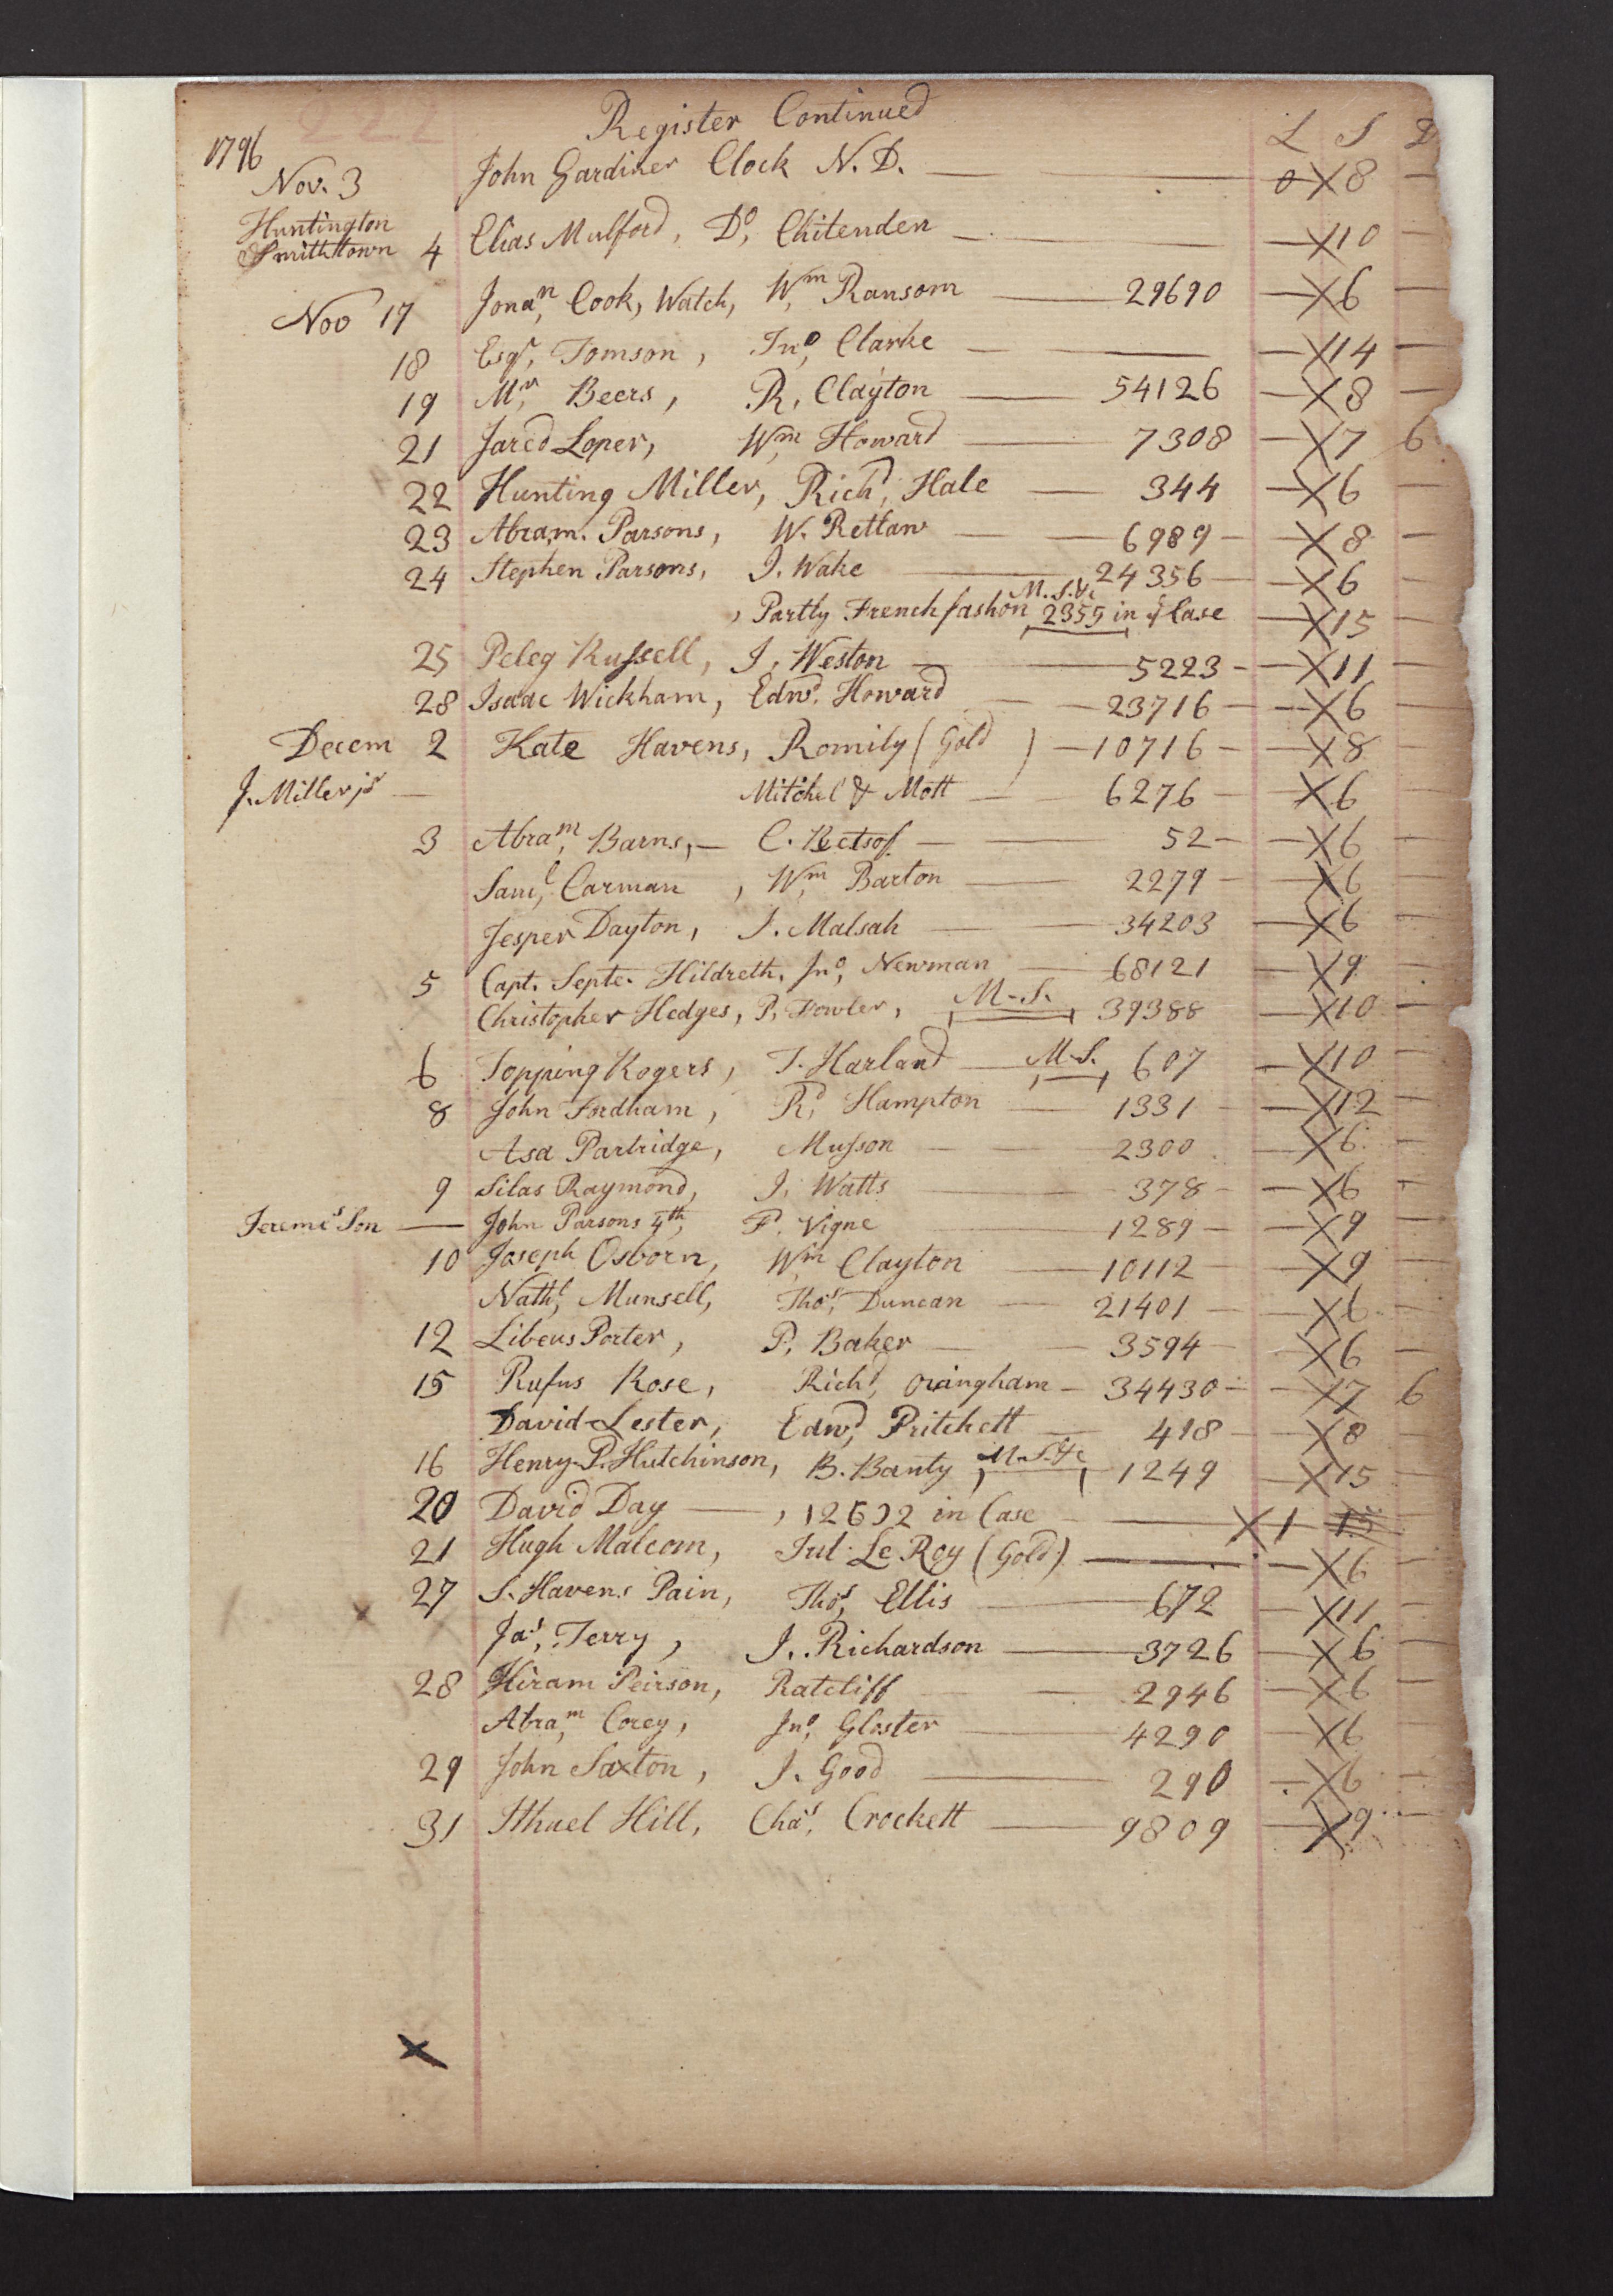 Register Continued
1796 L S D
Nov. 3 John Gardiner Clock N. D. — 0 X 8 —
Huntington
Smithtown 4 Elias Mulford, Do, Chitenden — X 10 —
Nov 17 Jonan, Cook, Watch, Wm Ransom — 29690 — X 6 —
18 Esqr, Tomson, Jno, Clarke — X 14 —
19 Mr, Beers, R. Clayton — 54126 — X 8 —
21 Jared Loper, Wm, Howard — 7308 — X 7 6
22 Hunting Miller, Richd, Hale — 344 — X 6 —
23 Abram. Parsons, W. Rettaw — 6989 — X 8 —
24 Stephen Parsons, J. Wake — 24356 — X 6 —
, Partly French fashon M.S.&c 2355 in Case — X 15 —
25 Peleg Russell, J. Weston — 5223 — X 11 —
28 Isaac Wickham, Edwd. Howard — 23716 — X 6 —
Decem 2 Kate Havens, Romily (Gold) — 10716 — X 8 —
J. Miller jr — Mitchel & Mott — 6276 — X 6 —
3 Abram, Barns, — C. Bectsof — 52 — X 6 —
Saml, Carman, Wm, Barton — 2279 — X 6 —
Jesper Dayton, J. Malsah — 34203 — X 6 —
5 Capt. Septe. Hildreth, Jno, Newman — 68121 — X 9 —
Christopher Hedges, P. Fowler, M.S. 39388 — X 10 —
6 Topping Rogers, T. Harland — M.S. 607 — X 10 —
8 John Fordham, Rd, Hampton — 1331 — X 12 —
Asa Partridge, Musson — 2300 — X 6 —
9 Silas Raymond, J. Watts — 378 — X 6 —
Jeremes Son — John Parsons 4th, F. Vigne — 1289 — X 9 —
10 Joseph Osborn, Wm Clayton — 10112 — X 9 —
Nathl, Munsell, Thos, Duncan — 21401 — X 6 —
12 Libeus Porter, P. Baker — 3594 — X 6 —
15 Rufus Rose, Richd, Oringham — 34430 — X 7 6
David Lester, Edwd, Pritchett — 418 — X 8 —
16 Henry P. Hutchinson, B. Banty M.S.&c 1249 — X 15 —
20 David Day — , 12632 in Case — X 1 15
21 Hugh Malcom, Jul. Le Roy (Gold) — X 6
27 S. Havens Pain, Thos, Ellis — 672 — X 11
Jas, Terry, J. Richardson — 3726 — X 6 —
28 Hiram Peirson, Ratcliff — 2946 — X 6 —
Abram, Corey, Jno, Gloster — 4290 — X 6 —
29 John Saxton, J. Good — 290 — X 6 —
31 Ithuel Hill, Chas, Crockett — 9809 — X 9 —
X